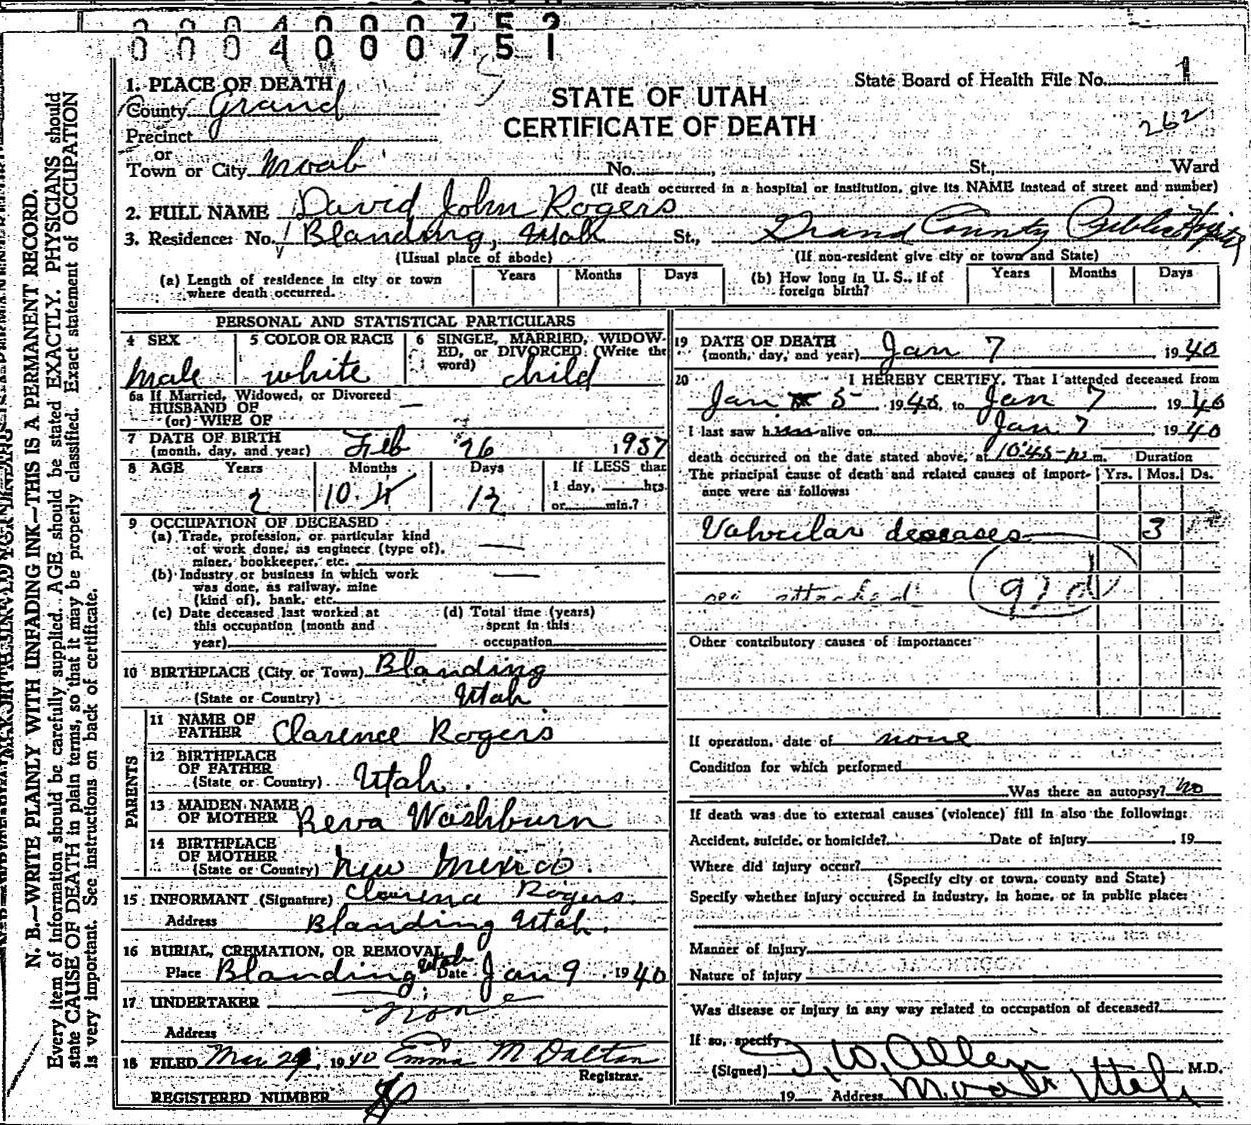 0 0 0 4 0 0 0 7 5 2
0 0 0 4 0 0 0 7 5 1
1. PLACE OF DEATH
County Grand
Precinct
or
Town or City Moab No. St., Ward
State Board of Health File No. 1
STATE OF UTAH
CERTIFICATE OF DEATH
262
(If death occurred in a hospital or institution, give its NAME instead of street and number)
2. FULL NAME David John Rogers
3. Residence: No. Blanding, Utah St., Grand County Public
(Usual place of abode) (If non-resident give city or town and State)
(a) Length of residence in city or town where death occurred. Years Months Days
(b) How long in U. S., if of foreign birth? Years Months Days
PERSONAL AND STATISTICAL PARTICULARS
4 SEX
male
5 COLOR OR RACE
white
6 SINGLE, MARRIED, WIDOWED, or DIVORCED (Write the word)
child
6a If Married, Widowed, or Divorced
HUSBAND OF
(or) WIFE OF
7 DATE OF BIRTH
(month, day, and year) Feb 26 1937
8 AGE Years Months Days If LESS than
1 day, hrs.
or min.?
2 10
9 OCCUPATION OF DECEASED
(a) Trade, profession, or particular kind
of work done, as engineer (type of),
miner, bookkeeper, etc.
(b) Industry or business in which work
was done, as railway, mine
(kind of), bank, etc.
(c) Date deceased last worked at
this occupation (month and
year)
(d) Total time (years)
spent in this
occupation
10 BIRTHPLACE (City or Town) Blanding
(State or Country) Utah
PARENTS
11 NAME OF
FATHER Clarence Rogers
12 BIRTHPLACE
OF FATHER
(State or Country) Utah.
13 MAIDEN NAME
OF MOTHER Reva Washburn
14 BIRTHPLACE
OF MOTHER
(State or Country) New Mexico.
15 INFORMANT (Signature) Clarence Rogers.
Address Blanding Utah.
16 BURIAL, CREMATION, OR REMOVAL
Place Blanding Utah Date Jan 9 1940
17 UNDERTAKER none
Address
18 FILED Mar 29, 1940 Emma M Dalton
Registrar.
REGISTERED NUMBER
19 DATE OF DEATH
(month, day, and year) Jan 7 1940
20 I HEREBY CERTIFY, That I attended deceased from
Jan 5 1940, to Jan 7 1940
I last saw him alive on Jan 7 1940
death occurred on the date stated above, at 10:45 p.m. Duration
The principal cause of death and related causes of importance were as follows: Yrs. Mos. Ds.
Valvular deseases 3
see attached 92d
Other contributory causes of importance:
If operation, date of none
Condition for which performed
Was there an autopsy? no
If death was due to external causes (violence) fill in also the following:
Accident, suicide, or homicide? Date of injury 19
Where did injury occur?
(Specify city or town, county and State)
Specify whether injury occurred in industry, in home, or in public place:
Manner of Injury
Nature of injury
Was disease or injury in any way related to occupation of deceased?
If so, specify
(Signed) I. W. Allen M.D.
19 Address Moab Utah
N. B.—WRITE PLAINLY WITH UNFADING INK—THIS IS A PERMANENT RECORD.
Every item of information should be carefully supplied. AGE should be stated EXACTLY. PHYSICIANS should
state CAUSE OF DEATH in plain terms, so that it may be properly classified. Exact statement of OCCUPATION
is very important. See instructions on back of certificate.